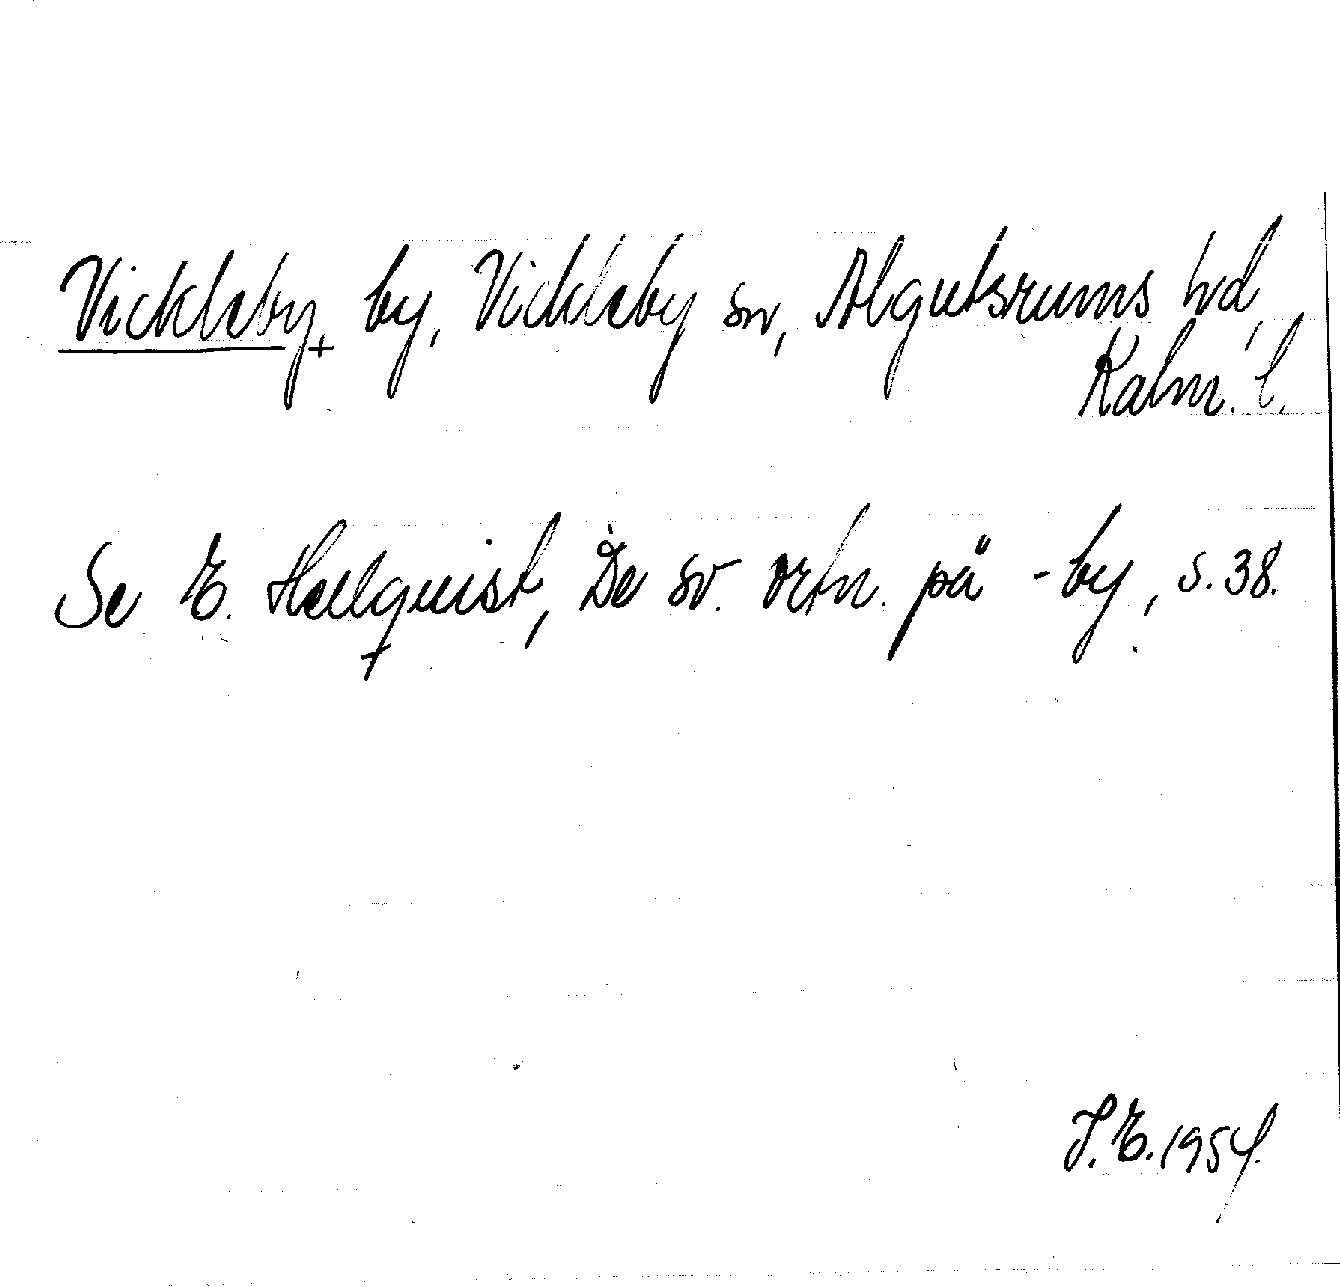 Vickleby, by, Vickleby sn, Algutsrums hd,
Kalm. l.
Se E. Hellquist, De sv. ortn. på -by, s. 38.
I.E. 1954.